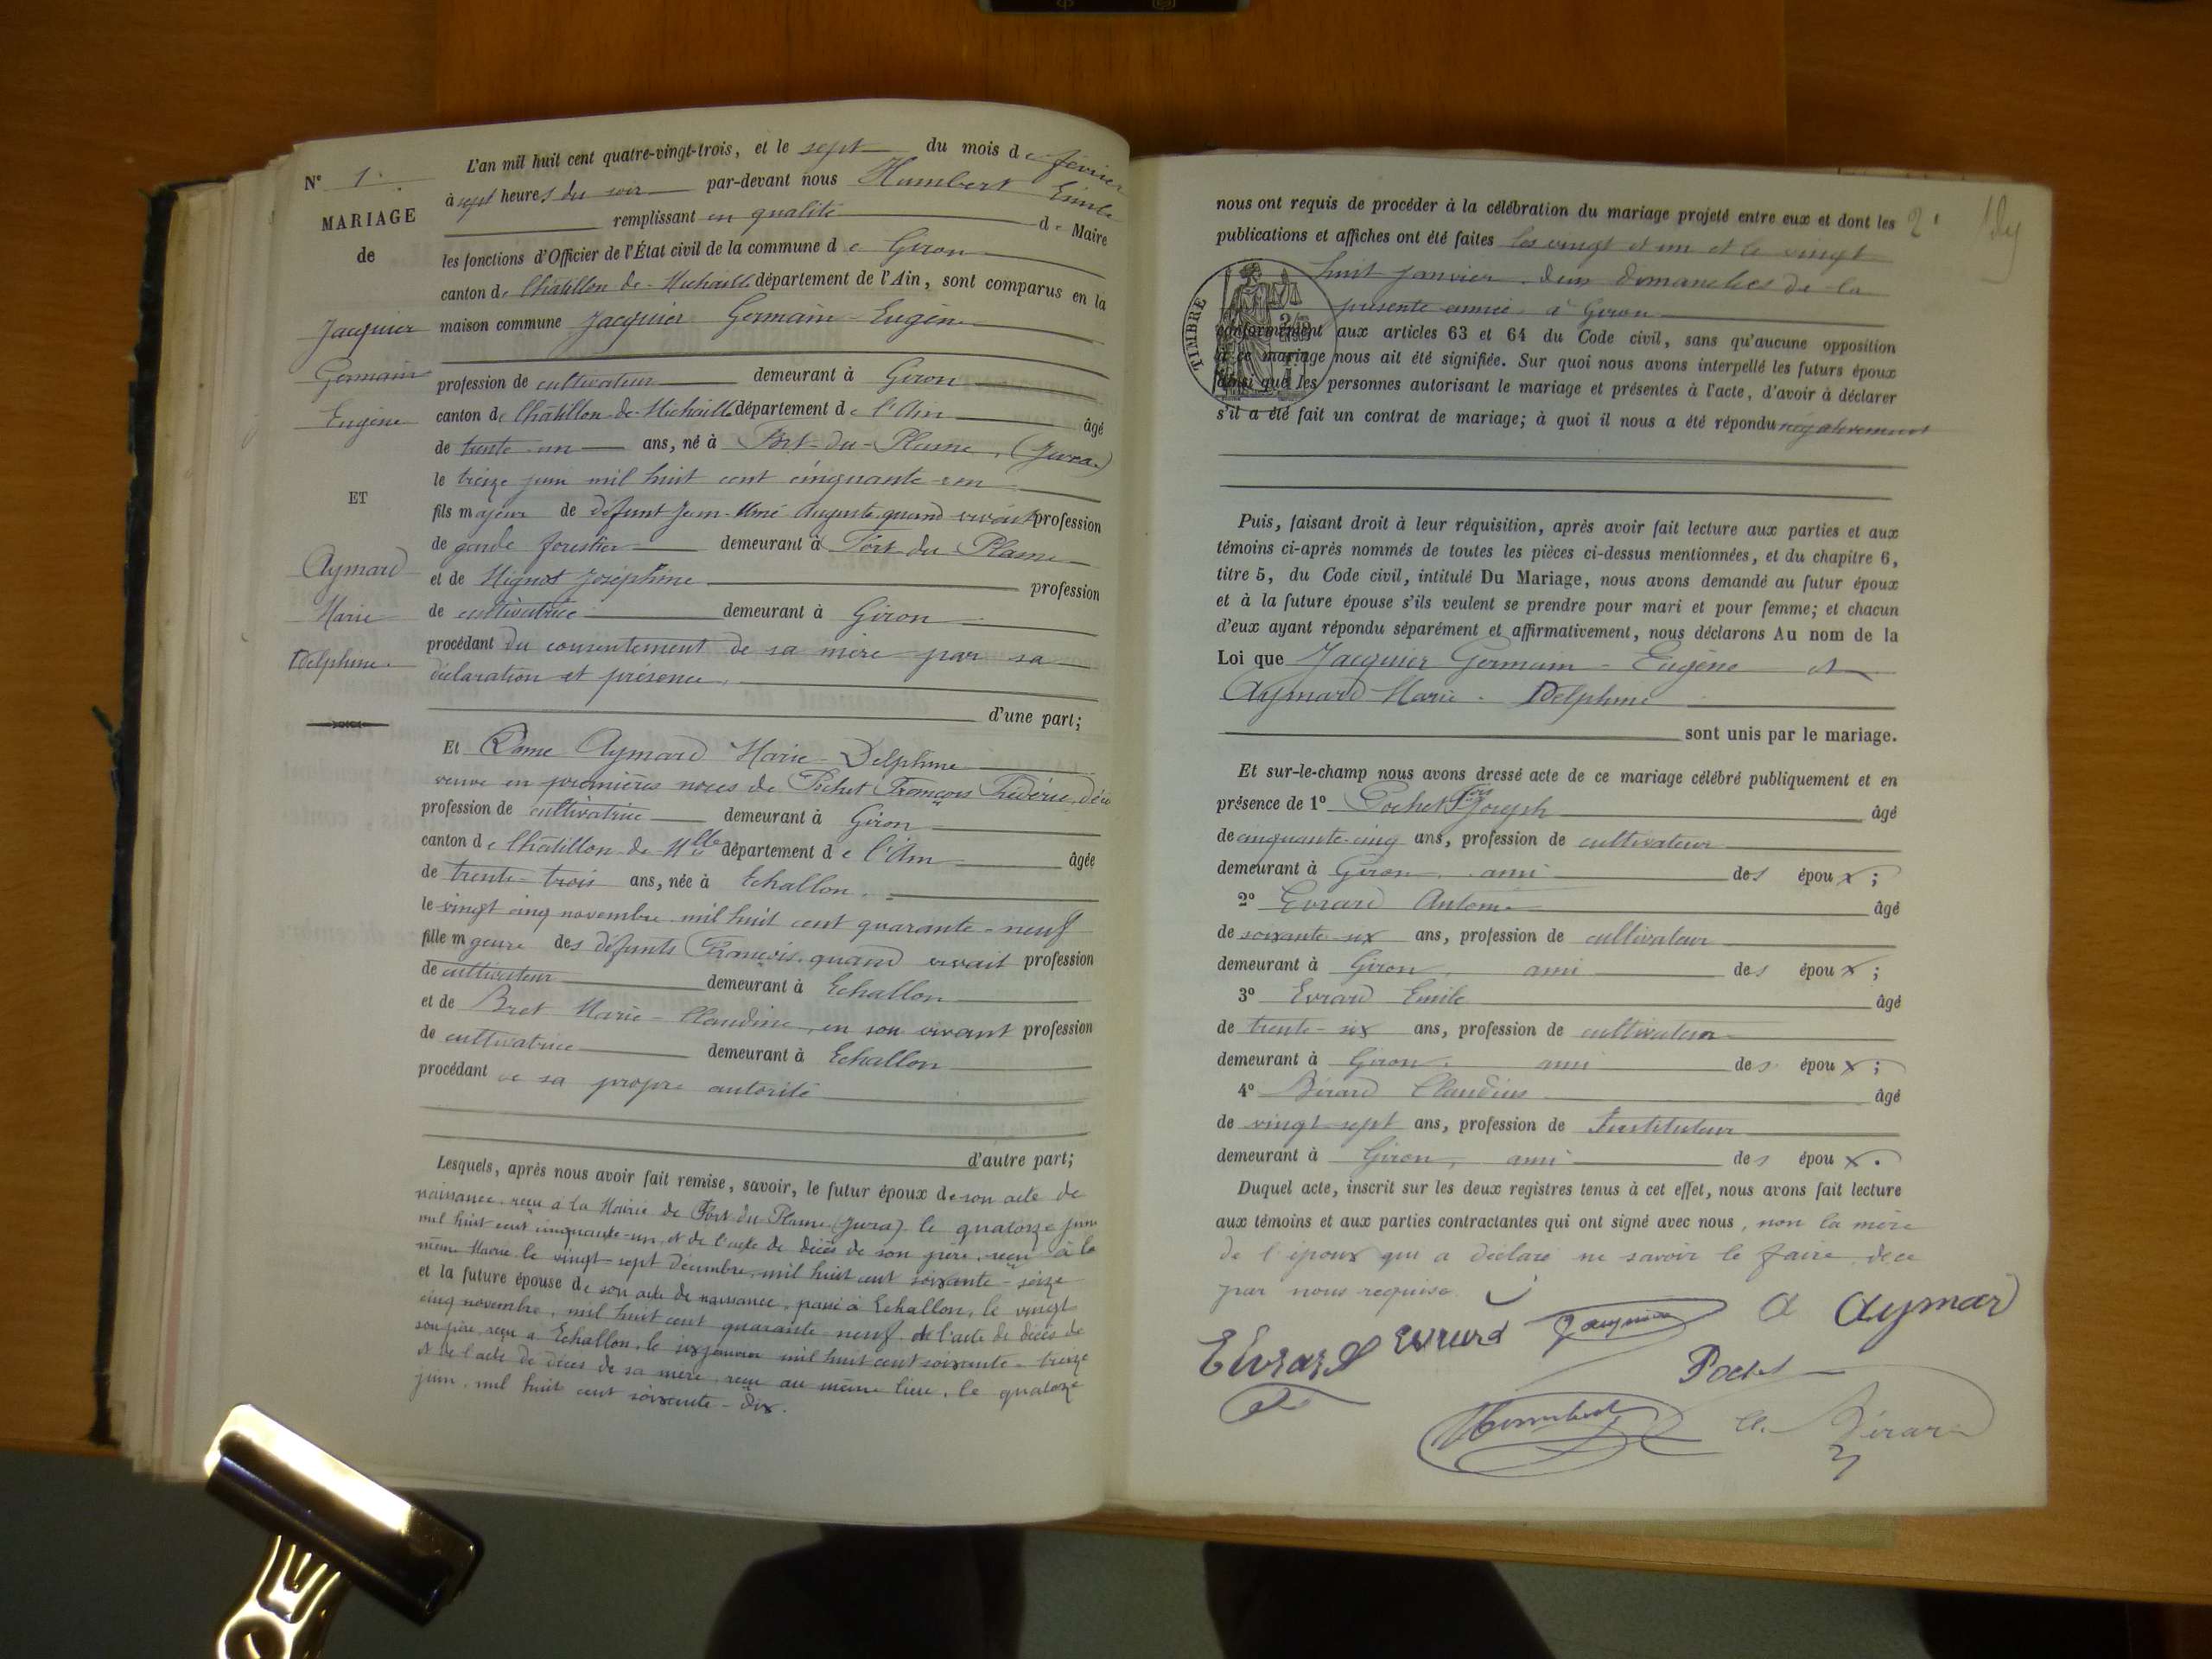 N° 1.
MARIAGE
de
Jacquier
Germain
Eugène
ET
Aymard
Marie
Delphine.
L'an mil huit cent quatre-vingt-trois, et le sept du mois de février
à sept heures du soir par-devant nous Humbert Emile
remplissant en qualité de Maire
les fonctions d'Officier de l'État civil de la commune de Giron
canton de Châtillon de Michaille département de l'Ain, sont comparus en la
maison commune Jacquier Germain-Eugène
profession de cultivateur demeurant à Giron
canton de Châtillon-de-Michaille département de l'Ain âgé
de trente-un ans, né à Fort-du-Plasne, (Jura)
le treize juin mil huit cent cinquante-un
fils majeur de défunt Jean-Aimé Auguste quand vivait profession
de garde forestier demeurant à Fort-du-Plasne
et de Mignot Joséphine profession
de cultivatrice demeurant à Giron
procédant du consentement de sa mère par sa
déclaration et présence.
d'une part;
Et Dame Aymard Marie-Delphine
veuve en premières noces de Pochet François Frédéric
profession de cultivatrice demeurant à Giron
canton de Châtillon de Mlle département de l'Ain âgée
de trente-trois ans, née à Echallon.
le vingt cinq novembre mil huit cent quarante-neuf
fille majeure des défunts François quand vivait profession
de cultivateur demeurant à Echallon
et de Bret Marie-Claudine, en son vivant profession
de cultivatrice demeurant à Echallon
procédant de sa propre autorité
d'autre part;
Lesquels, après nous avoir fait remise, savoir, le futur époux de son acte de
naissance, reçu à la Mairie de Fort-du-Plasne (Jura) le quatorze juin
mil huit cent cinquante-un, et de l'acte de décès de son père, reçu à la
même Mairie le vingt-sept décembre, mil huit cent soixante-seize
et la future épouse de son acte de naissance, passé à Echallon, le vingt
cinq novembre, mil huit cent quarante neuf, de l'acte de décès de
son père, reçu à Echallon, le six janvier mil huit cent soixante-treize
et de l'acte de décès de sa mère, reçu au même lieu, le quatorze
juin, mil huit cent soixante-dix.
2
nous ont requis de procéder à la célébration du mariage projeté entre eux et dont les
publications et affiches ont été faites les vingt et un et le vingt
huit janvier, deux dimanches de la
présente année à Giron
TIMBRE
conformément aux articles 63 et 64 du Code civil, sans qu'aucune opposition
à ce mariage nous ait été signifiée. Sur quoi nous avons interpellé les futurs époux
ainsi que les personnes autorisant le mariage et présentes à l'acte, d'avoir à déclarer
s'il a été fait un contrat de mariage; à quoi il nous a été répondu négativement
Puis, faisant droit à leur réquisition, après avoir fait lecture aux parties et aux
témoins ci-après nommés de toutes les pièces ci-dessus mentionnées, et du chapitre 6,
titre 5, du Code civil, intitulé Du Mariage, nous avons demandé au futur époux
et à la future épouse s'ils veulent se prendre pour mari et pour femme; et chacun
d'eux ayant répondu séparément et affirmativement, nous déclarons Au nom de la
Loi que Jacquier Germain-Eugène et
Aymard Marie-Delphine
sont unis par le mariage.
Et sur-le-champ nous avons dressé acte de ce mariage célébré publiquement et en
présence de 1° Pochet fois Joseph âgé
de cinquante-cinq ans, profession de cultivateur
demeurant à Giron, ami des époux;
2° Evrard Antoine âgé
de soixante-six ans, profession de cultivateur
demeurant à Giron, ami des époux;
3° Evrard Emile âgé
de trente-six ans, profession de cultivateur
demeurant à Giron, ami des époux;
4° Bérard Claudius âgé
de vingt-sept ans, profession de Instituteur
demeurant à Giron, ami des époux.
Duquel acte, inscrit sur les deux registres tenus à cet effet, nous avons fait lecture
aux témoins et aux parties contractantes qui ont signé avec nous, non la mère
de l'époux qui a déclaré ne savoir le faire de ce
par nous requise.
Evrard Evrard Jacquier A Aymard
Pochet
Humbert Cl. Bérard